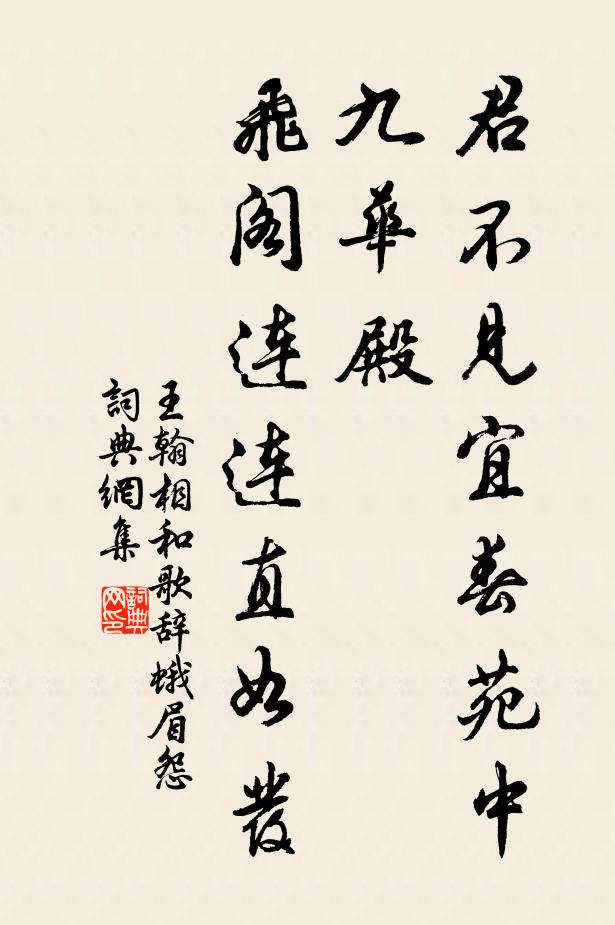 君不見宜春苑中
九華殿
飛阁連連直如發
王翰相和歌辞蛾眉怨
詞典網集
詞典网印